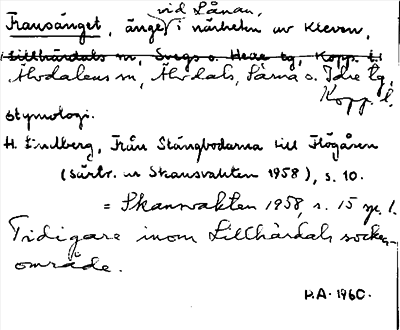 vid Lånan,
Fransänget, änge i närheten av Kleven,
Lillhärdals sn, Svegs o. Hede tg, Kopp. l.
Älvdalens sn, Älvdals, Särna o. Idre tg,
Kopp. l.
etymologi.
H. Lindberg, Från Stängbodarna till Högåsen
(särtr. ur Skansvakten 1958), s. 10.
= Skansvakten 1958, s. 15 sp. 1.
Tidigare inom Lillhärdals socken-
område.
H.A. 1960.